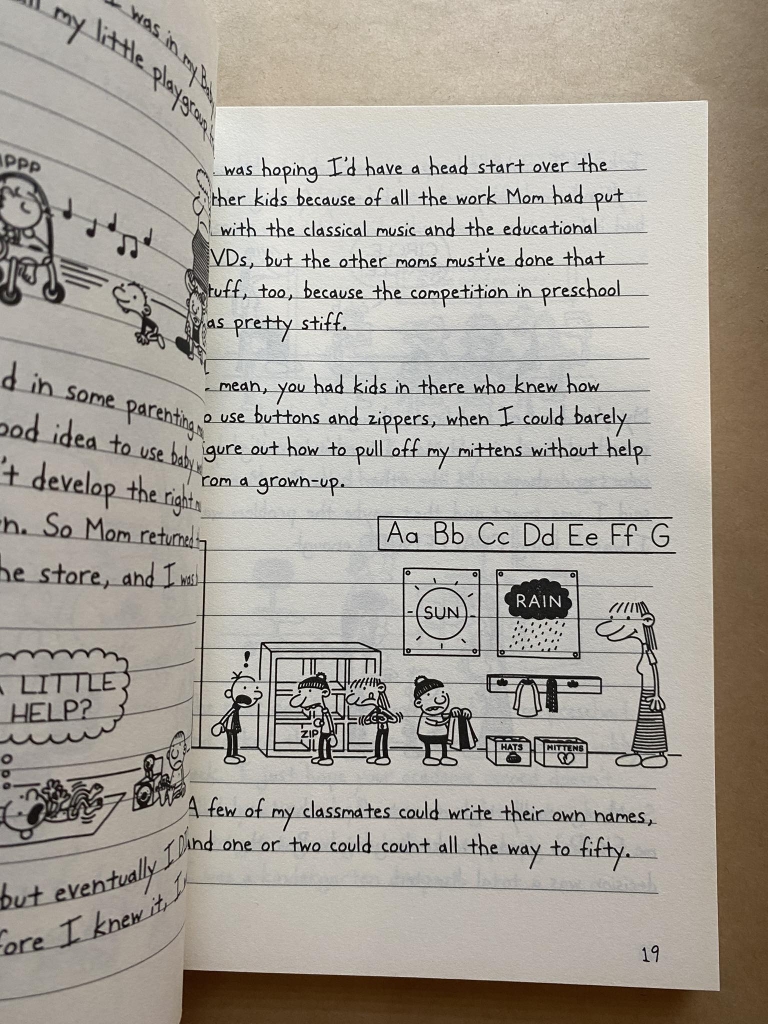 I was in my Baby
my little playgroup
PPP
d in some parenting
ood idea to use baby
't develop the right
n. So Mom returned
he store, and I was
LITTLE
HELP?
but eventually I
fore I knew it, I
was hoping I'd have a head start over the
ther kids because of all the work Mom had put
with the classical music and the educational
VDs, but the other moms must've done that
tuff, too, because the competition in preschool
as pretty stiff.
mean, you had kids in there who knew how
o use buttons and zippers, when I could barely
igure out how to pull off my mittens without help
rom a grown-up.
Aa Bb Cc Dd Ee Ff G
SUN
RAIN
!
ZIP
HATS
MITTENS
A few of my classmates could write their own names,
and one or two could count all the way to fifty.
19